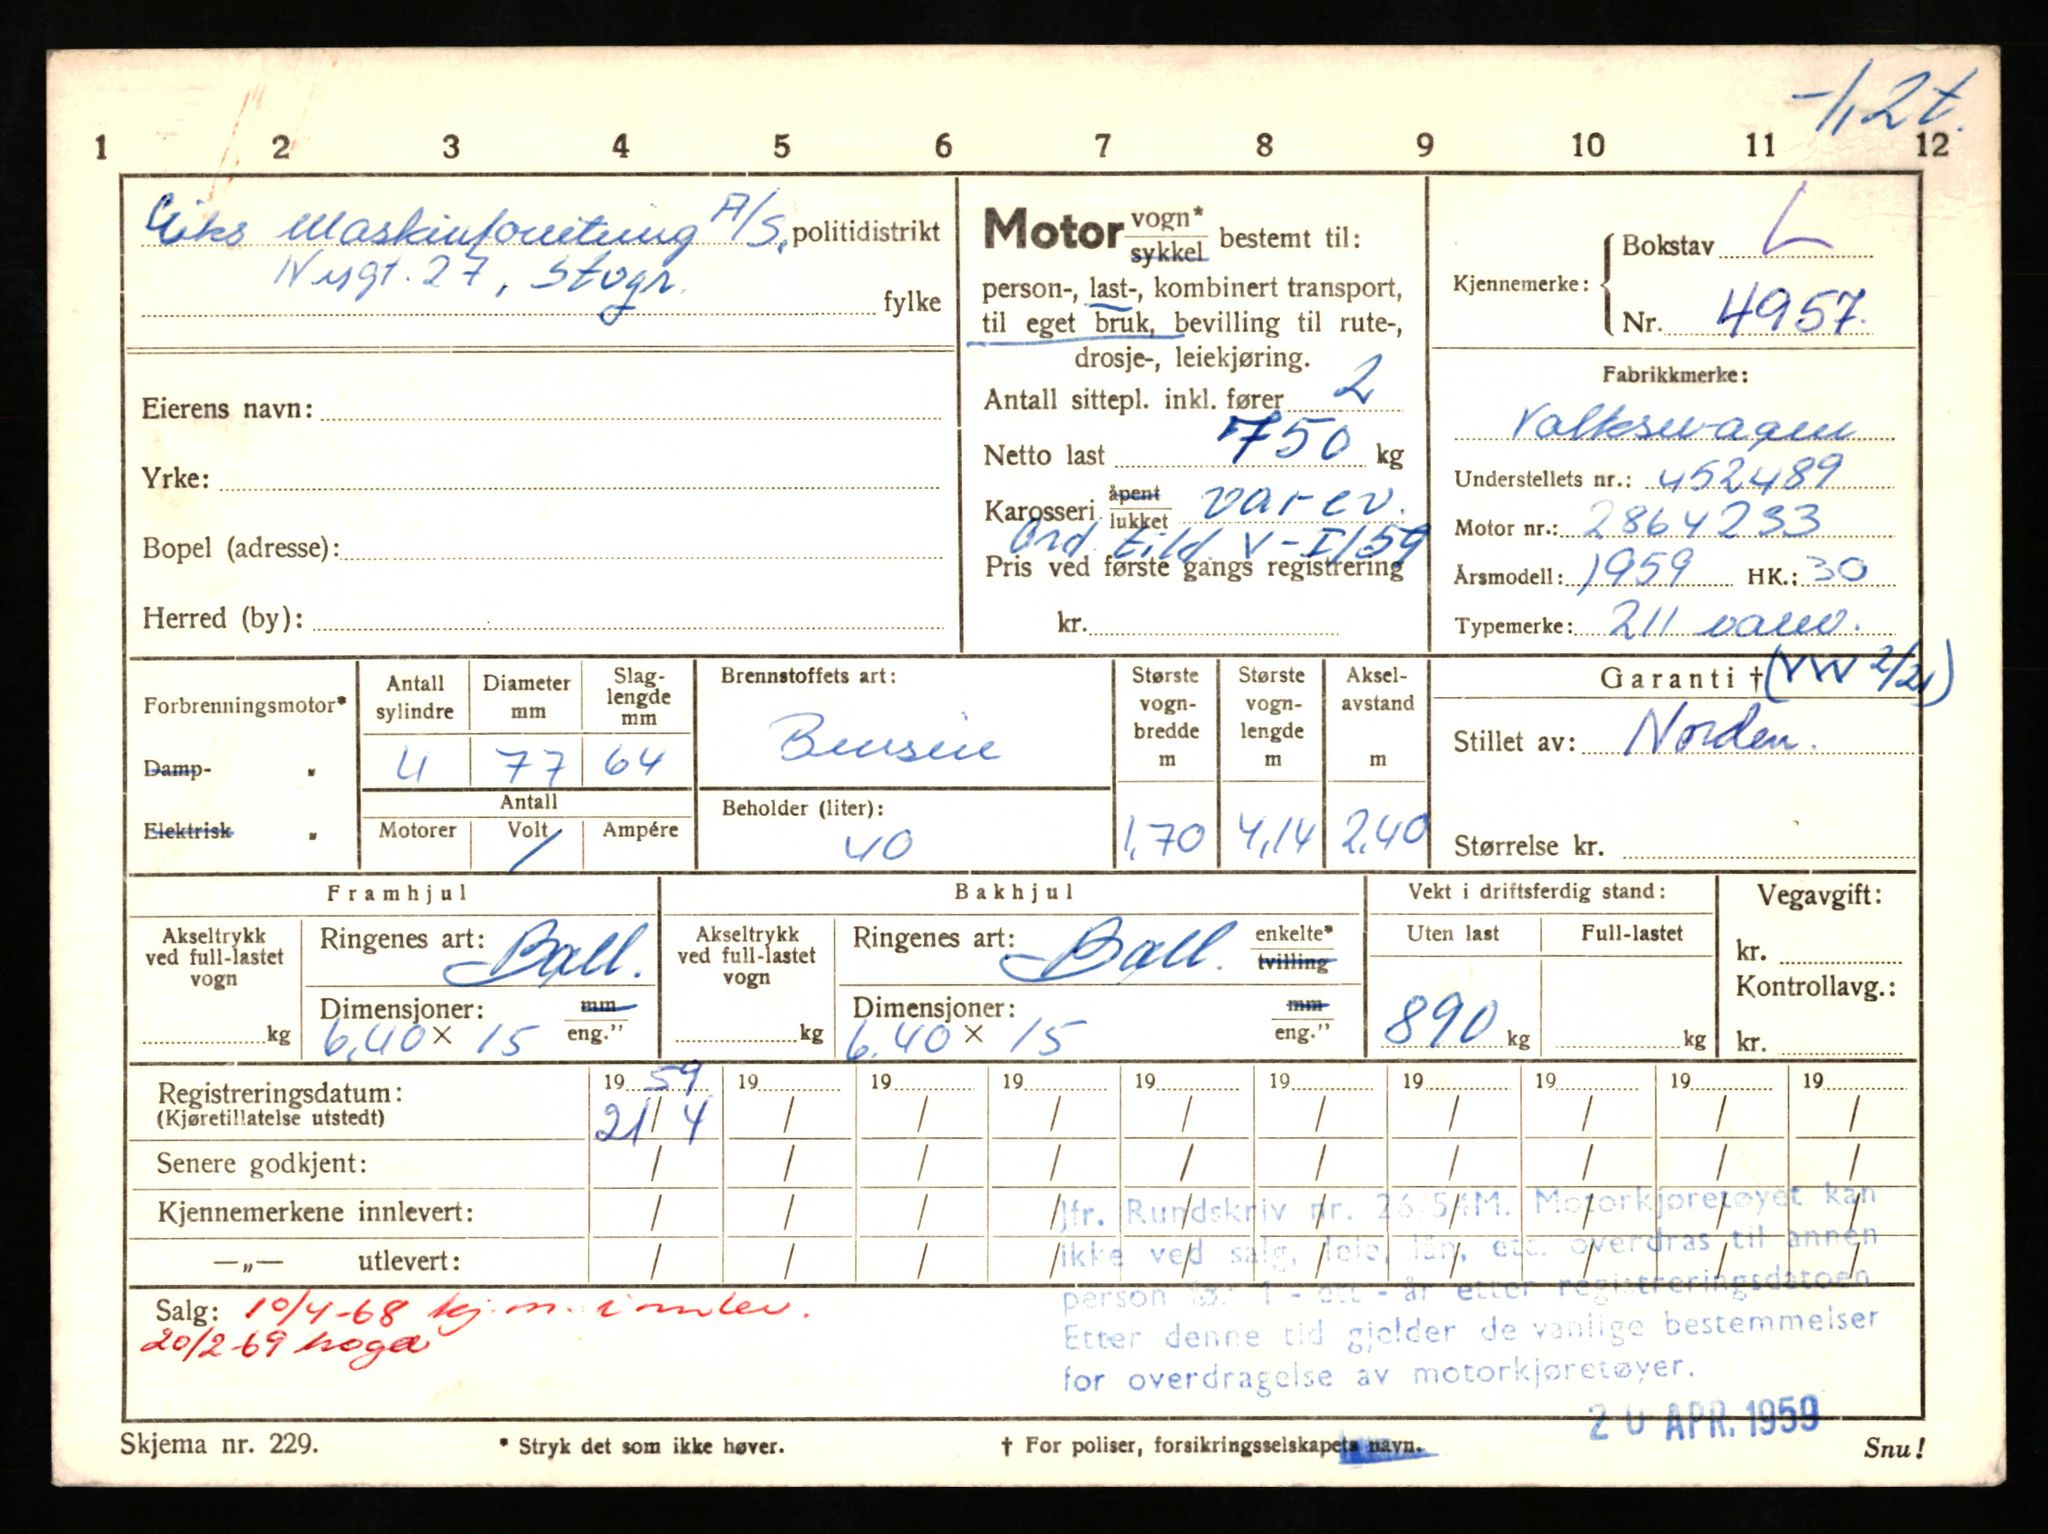 -1,2t.
1 2 3 4 5 6 7 8 9 10 11 12
Eiks Maskinforretning A/S, politidistrikt
Nygt. 27, Stvgr.
fylke
Eierens navn:
Yrke:
Bopel (adresse):
Herred (by):
Motor vogn* sykkel bestemt til:
person-, last-, kombinert transport,
til eget bruk, bevilling til rute-,
drosje-, leiekjøring.
Antall sittepl. inkl. fører 2
Netto last 750 kg
Karosseri åpent lukket varev.
Ord. tild. V-I/59
Pris ved første gangs registrering
kr.
Kjennemerke: Bokstav L
Nr. 4957.
Fabrikkmerke:
Volkswagen
Understellets nr.: 452489
Motor nr.: 2864233
Årsmodell: 1959 HK.: 30
Typemerke: 211 varev.
Forbrenningsmotor*
Damp- "
Elektrisk "
Antall sylindre
4
Diameter mm
77
Slag-lengde mm
64
Antall
Motorer Volt Ampére
/
Brennstoffets art:
Bensin
Beholder (liter):
40
Største vogn-bredde m
1,70
Største vogn-lengde m
4,14
Aksel-avstand m
2,40
Garanti † (VW 2/21)
Stillet av: Norden.
Størrelse kr.
Framhjul
Akseltrykk ved full-lastet vogn
kg
Ringenes art: Ball.
Dimensjoner: mm eng."
6,40 × 15
Bakhjul
Akseltrykk ved full-lastet vogn
kg
Ringenes art: Ball. enkelte* tvilling
Dimensjoner: mm eng."
6.40 × 15
Vekt i driftsferdig stand:
Uten last Full-lastet
890 kg kg
Vegavgift:
kr.
Kontrollavg.:
kr.
Registreringsdatum: 19 59 19 19 19 19 19 19 19 19 19
(Kjøretillatelse utstedt) 21/4 / / / / / / / / /
Senere godkjent: / / / / / / / / / /
Kjennemerkene innlevert: / / / / / / / / / /
—„— utlevert: / / / / / / / / / /
Salg: 10/4-68 kj.m. innlev.
20/2-69 hoga
Jfr. Rundskriv nr. 26/54M. Motorkjøretøyet kan
ikke ved salg, leie, lån, etc. overdras til annen
person før 1 - ett - år etter registreringsdatoen.
Etter denne tid gjelder de vanlige bestemmelser
for overdragelse av motorkjøretøyer.
20 APR. 1959
Skjema nr. 229.
* Stryk det som ikke høver.
† For poliser, forsikringsselskapets navn.
Snu!